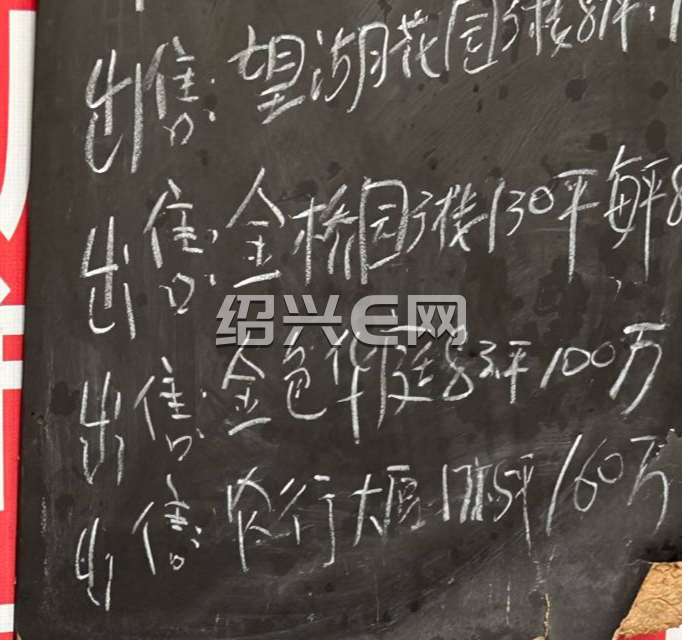 出售:望湖花园3楼8
出售:金桥园3楼130平每平8
绍兴E网
出售:金色华庭83平100万
出售:农行大厦175平160万